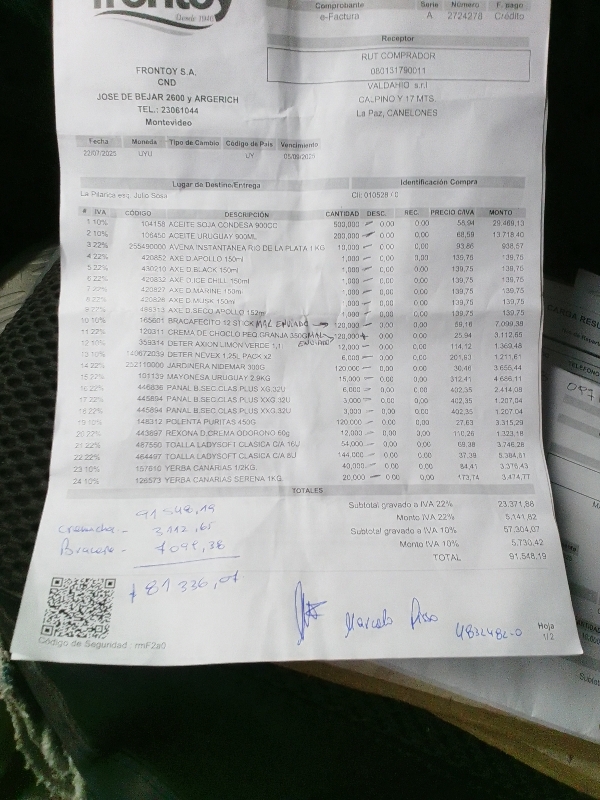 frontoy
Desde 1946
Comprobante Serie Número F. pago
e-Factura A 2724278 Crédito
Receptor
RUT COMPRADOR
080151790011
VALDAHIO s.r.l
CALPINO Y 17 MTS.
La Paz, CANELONES
FRONTOY S.A.
CND
JOSE DE BEJAR 2600 y ARGERICH
TEL.: 23061044
Montevideo
Fecha Moneda Tipo de Cambio Código de País Vencimiento
22/07/2025 UYU UY
Lugar de Destino/Entrega Identificación Compra
La Pilarica esq. Julio Sosa CII: 010528 / C
# IVA CÓDIGO DESCRIPCIÓN CANTIDAD DESC. REC. PRECIO C/IVA MONTO
1 10% 104158 ACEITE SOJA CONDESA 900CC 500,000 0,00 0,00 58,94 29.469,13
2 10% 106450 ACEITE URUGUAY 900ML 200,000 0,00 0,00 68,59 13.718,40
3 22% 258490000 AVENA INSTANTANEA RIO DE LA PLATA 1 KG 10,000 0,00 0,00 93,86 938,57
4 22% 420852 AXE D.APOLLO 150ml 1,000 0,00 0,00 139,75 139,75
5 22% 430210 AXE D.BLACK 150ml 1,000 0,00 0,00 139,75 139,75
6 22% 420832 AXE D.ICE CHILL 150ml 1,000 0,00 0,00 139,75 139,75
7 22% 420827 AXE D.MARINE 150ml 1,000 0,00 0,00 139,75 139,75
8 22% 420826 AXE D.MUSK 150ml 1,000 0,00 0,00 139,75 139,75
9 22% AXE D.SECO APOLLO 152ml 1,000 0,00 0,00 139,75 139,75
10 10% 165601 BRACAFECITO 12 STICK MAL ENVIADO 120,000 0,00 0,00 59,16 7.099,38
11 22% 120311 CREMA DE CHOCLO PEQ GRANJA 350G MAL ENVIADO 120,000 0,00 0,00 25,94 3.112,65
12 22% 359314 DETER AXION LIMON VERDE 1,1 12,000 0,00 0,00 114,12 1.369,48
13 10% 140672039 DETER NEVEX 1.25L PACK x2 6,000 0,00 0,00 201,93 1.211,61
14 22% 232110000 JARDINERA NIDEMAR 300G 120,000 0,00 0,00 30,46 3.655,44
15 22% 101139 MAYONESA URUGUAY 2.9KG 15,000 0,00 0,00 312,41 4.686,11
16 22% 446836 PANAL B.SEC.CLAS PLUS XG 32U 6,000 0,00 0,00 402,35 2.414,08
17 22% 445894 PANAL B.SEC.CLAS PLUS XXG 32U 3,000 0,00 0,00 402,35 1.207,04
18 22% 445894 PANAL B.SEC.CLAS PLUS XXG 32U 3,000 0,00 0,00 402,35 1.207,04
19 10% 148312 POLENTA PURITAS 450G 120,000 0,00 0,00 27,63 3.315,29
20 22% 443897 REXONA D.CREMA ODORONO 60g 12,000 0,00 0,00 110,26 1.323,18
21 22% 467550 TOALLA LADYSOFT CLASICA C/A 16U 54,000 0,00 0,00 69,38 3.746,28
22 22% 464497 TOALLA LADYSOFT CLASICA C/A 8U 144,000 0,00 0,00 37,38
23 10% 157610 YERBA CANARIAS 1/2KG. 40,000 0,00 0,00 84,41 3.376,43
24 10% 126573 YERBA CANARIAS SERENA 1KG 20,000 0,00 0,00 173,74 3.474,77
TOTALES
Subtotal gravado a IVA 22% 23.371,86
Monto IVA 22% 5.141,82
Subtotal gravado a IVA 10% 57.304,07
Monto IVA 10% 5.730,42
TOTAL 91.548,19
91548,19
3112,65
7099,38
$ 81336,07
Marcelo
4832482-0
Código de Seguridad : rmF2a0
Hoja
1/2
CARGA
TELEFONO
097